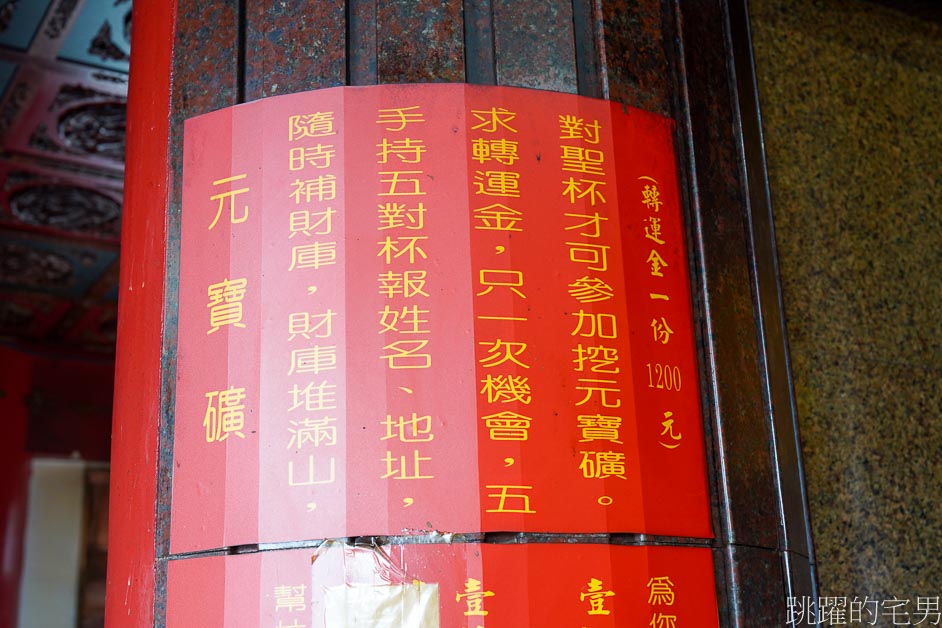 元寶礦
隨時補財庫，財庫堆滿山，
手持五對杯報姓名、地址，
求轉運金，只一次機會，五
對聖杯才可參加挖元寶礦。
（轉運金一份1200元）
幫
壹
壹
為你
跳躍的宅男